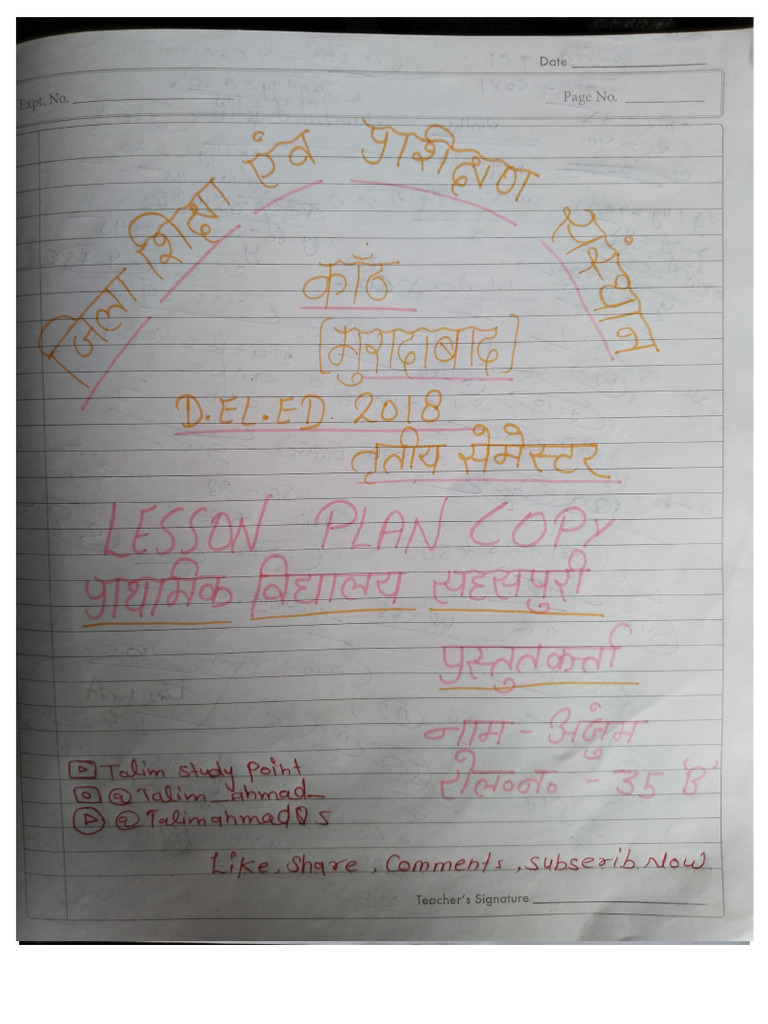 Date
Expt. No.
Page No.
जिला शिक्षा एंव प्राशीक्षण संस्थान
काँठ
[मुरादाबाद]
D.EL.ED. 2018
तृतीय सेमेस्टर
LESSON PLAN COPY
प्राथामिक विद्यालय सहसपुरी
प्रस्तुतकर्त्ता
नाम - अंजुम
रोल०न० - 35 'B'
Talim study Point
@Talim_ahmad_
@Talimahmad05
Like, Share, Comments, Subserib Now
Teacher's Signature